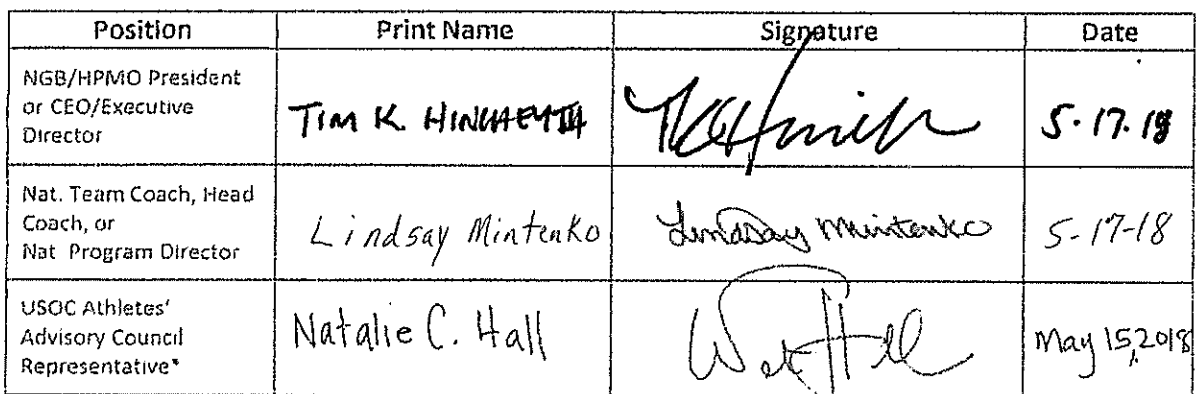 Position Print Name Signature Date
NGB/HPMO President
or CEO/Executive
Director
TIM K. HINCHEY III
5.17.18
Nat. Team Coach, Head
Coach, or
Nat Program Director
Lindsay Mintenko
Lindsay Mintenko
5-17-18
USOC Athletes'
Advisory Council
Representative*
Natalie C. Hall
May 15, 2018